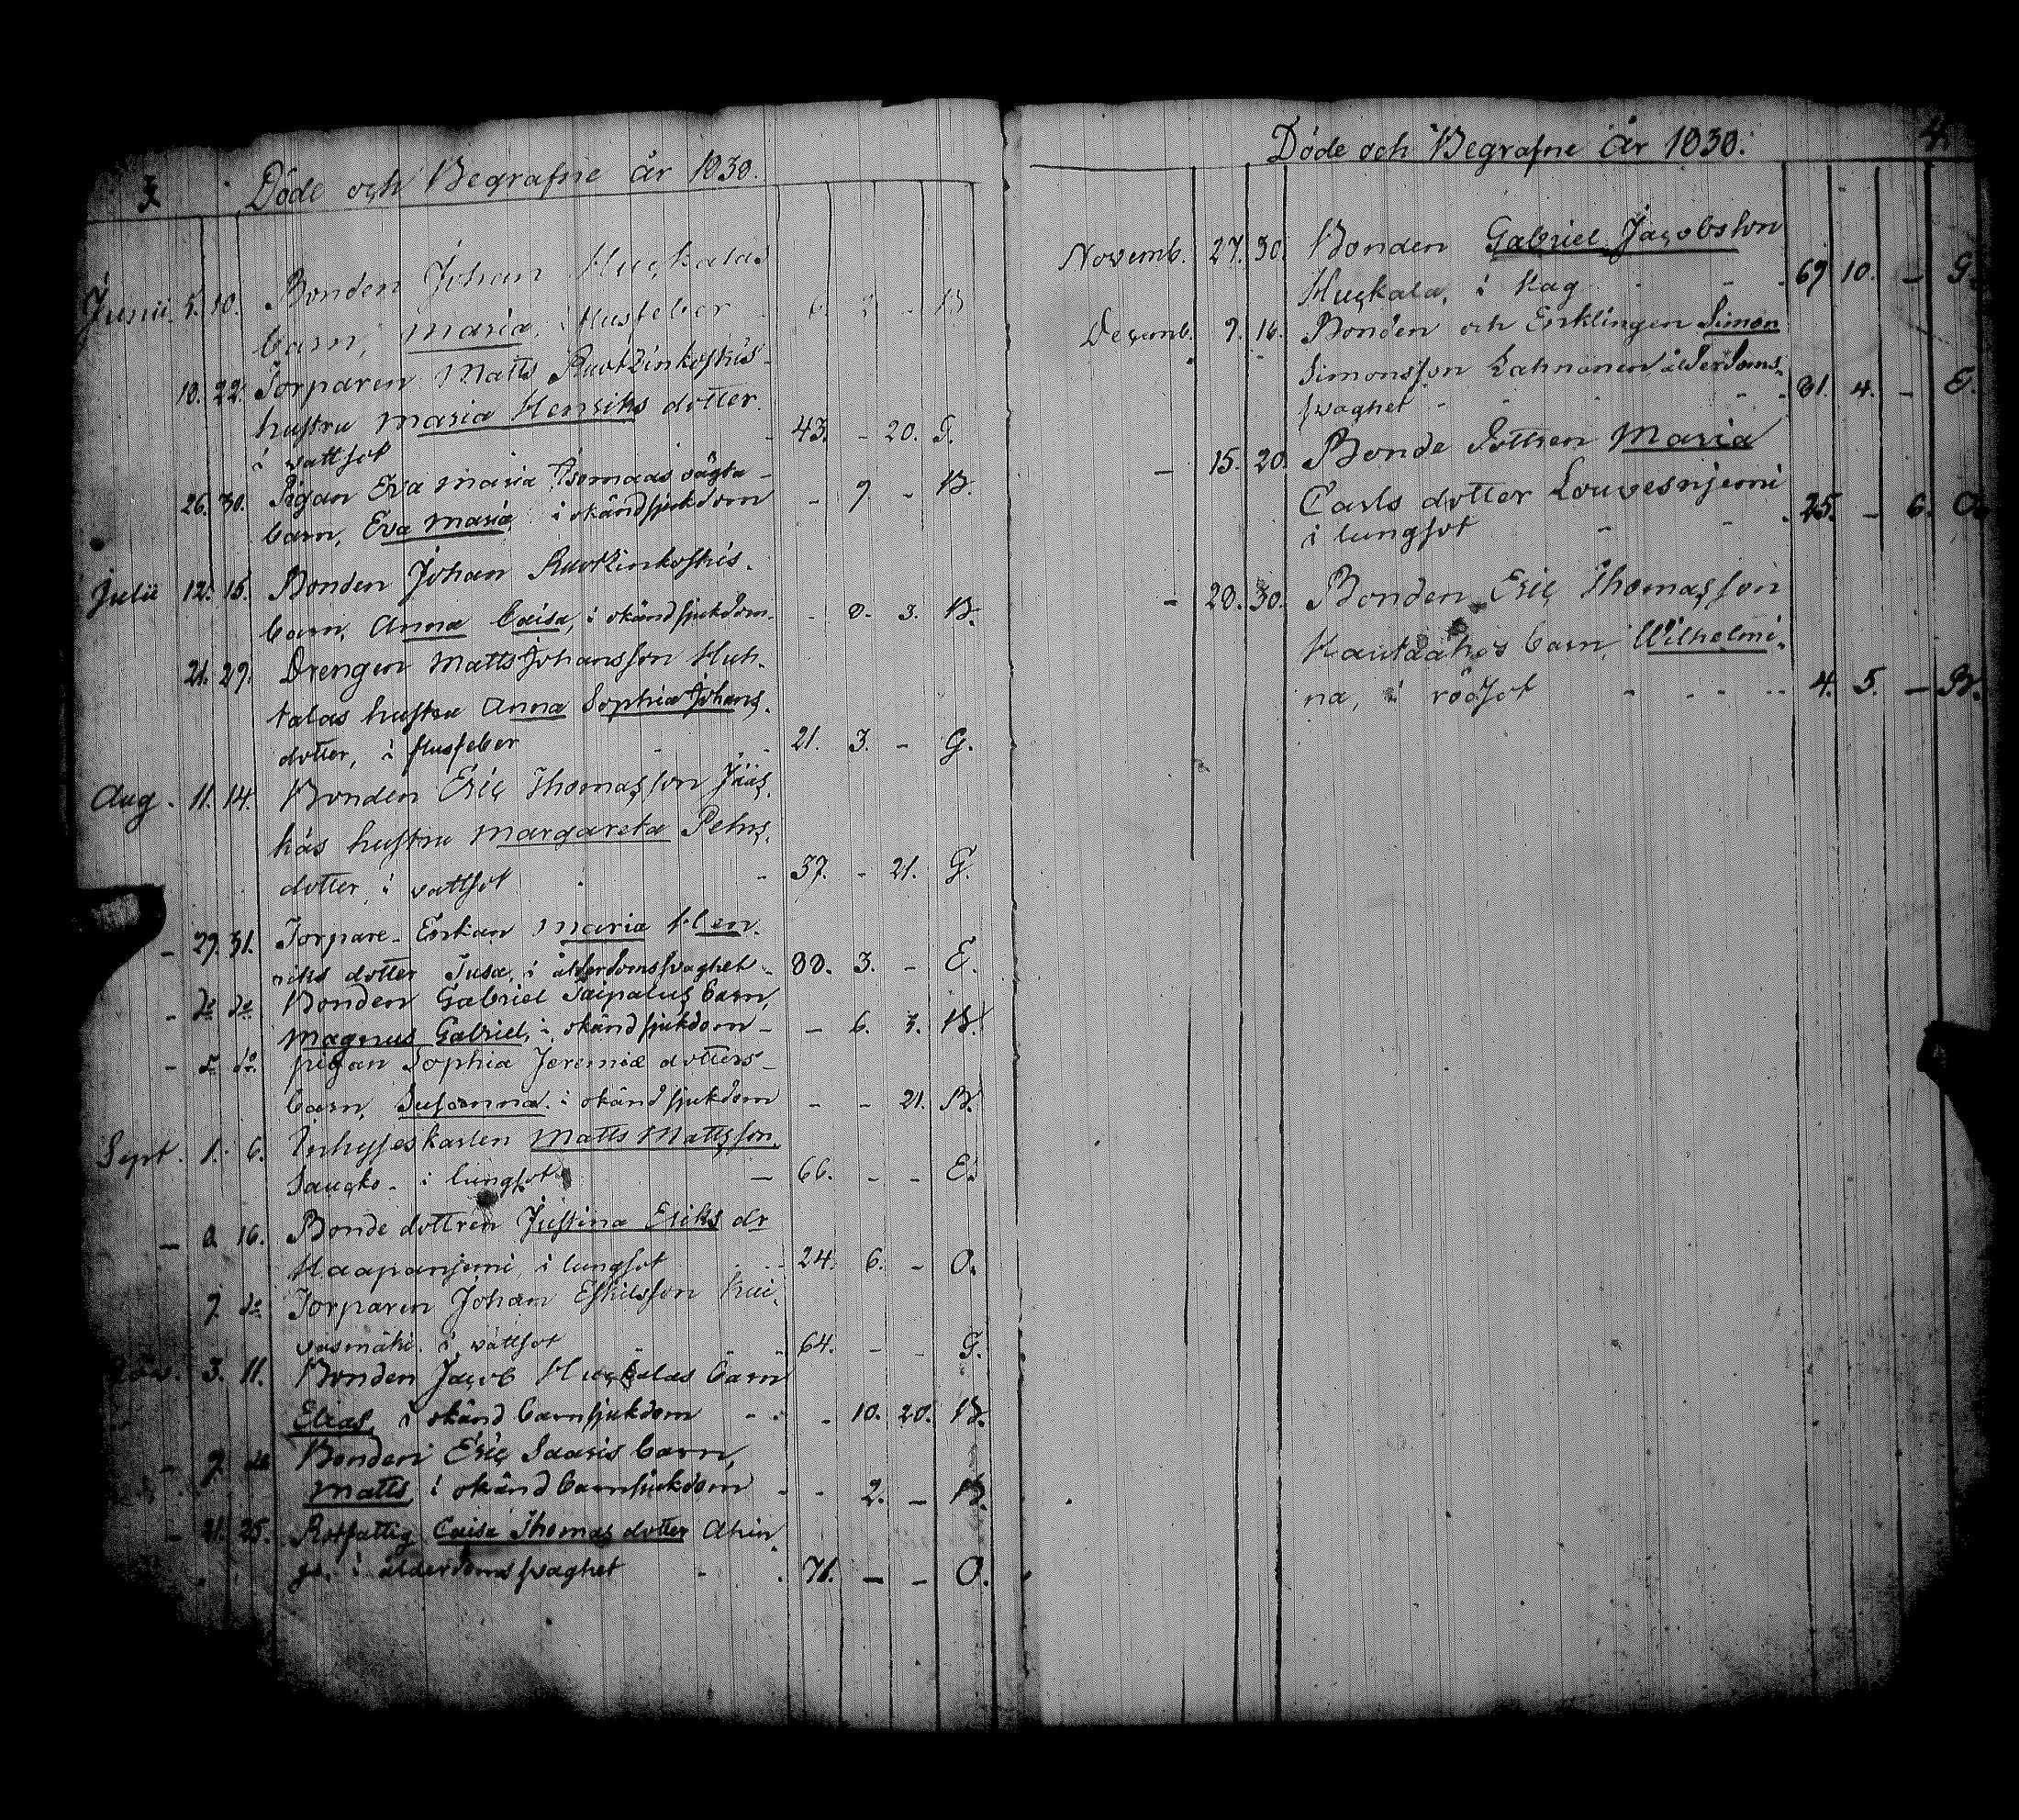 3.
Döde och Begrafne år 1830.
Junii 5. 10. Bonden Johan Huckalas
barn, Maria, i flusfeber - 6. - B
18. 22. Torparen Matts Ruotzinkoskis
hustru Maria Henriks dotter
i vattsot - 43. - 20. G.
26. 30. Pigan Eva Maria oägta
barn, Eva Maria, i okänd sjukdom - 9. - B.
Julii 12. 15. Bonden Johan Ruotzinkoskis
barn, Anna Caisa, i okänd sjukdom - 8. 3. B.
21. 27. Drengen Matts Johansson Huh-
talas hustru Anna Sophia Johans
dotter, i flusfeber - 21. 3. - G.
Aug. 11. 14. Bonden Eric Thomasson Jääs-
käs hustru Margareta Petrs
dotter, i vattsot - 37. - 21. G.
- 27. 31. Torpare Enkan Maria Hen-
riks dotter Tusa, i ålderdomsswaghet 88. 3. - E.
- do do Bonden Gabriel Taipalus barn,
Magnus Gabriel, i okänd sjukdom - - 6. 3. B.
- do do. pigan Sophia Jeremiæ dotters
barn, Susanna, i okänd sjukdom - - 21. B.
Sept. 1. 6. Inhyseskarlen Matts Mattsson
Saucko - i lungsot - 66. - - E.
- 8. 16. Bonde dottren Justina Eriks dr
Haapaniemi, i lungsot 24. 6. - O.
7. do Torparen Johan Eskilsson Kui-
vasmäki, i vattsot 64. - - G.
3. 11. Bonden Jacob Huckalas barn
Elias, i okänd barnsjukdom - 10. 20. B.
- 9. do Bonden Eric Saaris barn,
Matts, i okänd barnsjukdom - - 2. - B.
- 21. 25. Rotfattig Caisa Thomas dotter
i ålderdomsswaghet - 71. - - O.
4.
Döde och Begrafne år 1830.
Novemb. 27. 30. Bonden Gabriel Jacobsson
Huckala, i Hag - 69 10. - G.
Decemb. 9. 16. Bonden och Enklingen Simon
Simonsson Lahnanen, ålderdoms-
swaghet - 81. 4. - E.
- 15. 20. Bonde dottren Maria
Carls dotter Louvesniemi
i lungsot - 25. - 6. O.
- 28. 30. Bonden Eric Thomasson
Kautaahos barn, Wilhelmi-
na, i rödsot - 4. 5. - B.